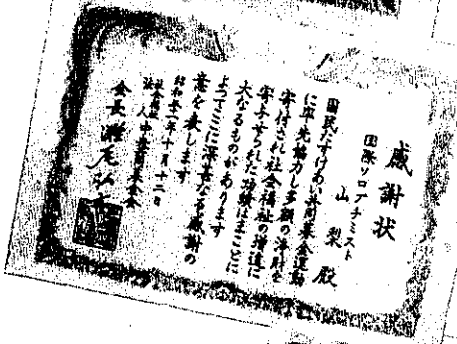 感謝状
国際ソロプチミスト
山梨殿
国民たすけあい共同募金運動
に率先協力し多額の浄財を
寄付され社会福祉の増進に
寄与せられた功績はまことに
大なるものがあります
よつてここに深甚なる感謝の
意を表します
昭和五十一年十月十二日
社会福祉
法人中央共同募金会
会長灘尾弘吉